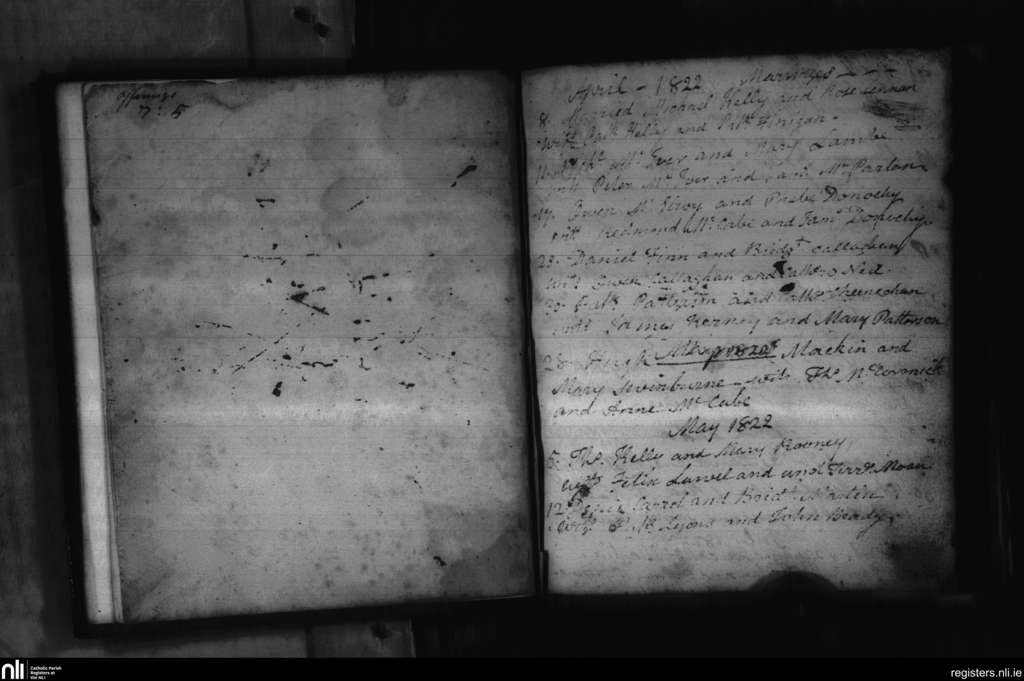 7 : 5
April - 1822 Marriages - - -
8. Married Michael Kelly and Rose Lennon
witts Patk Kelly and Patk Finigan.
Ths Mc Ever and Mary Lambe
witts Peter Mc Iver and Mc Parlon
17. Owen Mc Elroy and Donochy
witts Redmond Mc Cabe and Jams Donochy.
Daniel Finn and Bridgt Callaghan
witts Owen Callaghan and Neil
Patk Patterson and Sheenechan
witts James Kerney and Mary Patterson
28. Hugh May 1822 Mackin and
Mary Swinburne witts Ths Mc Cormick
and Anne Mc Cabe
May 1822
5. Ths Kelly and Mary Rooney,
witts Felix and and
12. Carrol and Bridt Martin
witts Lyons and John Brady.
nli Catholic Parish
Registers at
the NLI
registers.nli.ie